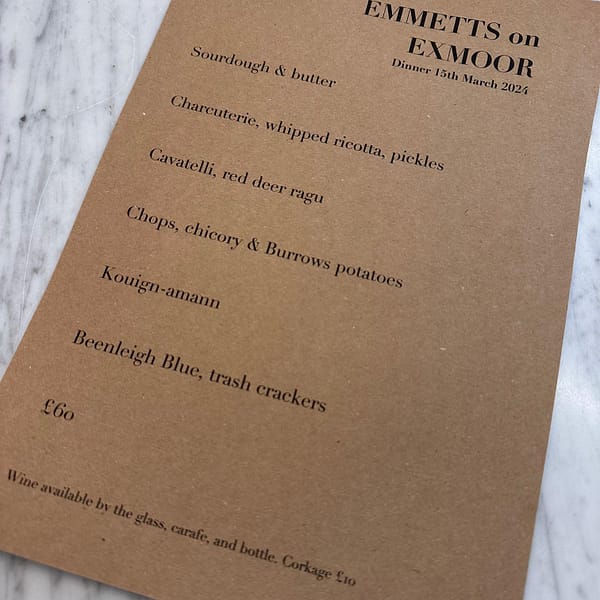 EMMETTS on
EXMOOR
Dinner 15th March 2024
Sourdough & butter
Charcuterie, whipped ricotta, pickles
Cavatelli, red deer ragu
Chops, chicory & Burrows potatoes
Kouign-amann
Beenleigh Blue, trash crackers
£60
Wine available by the glass, carafe, and bottle. Corkage £10